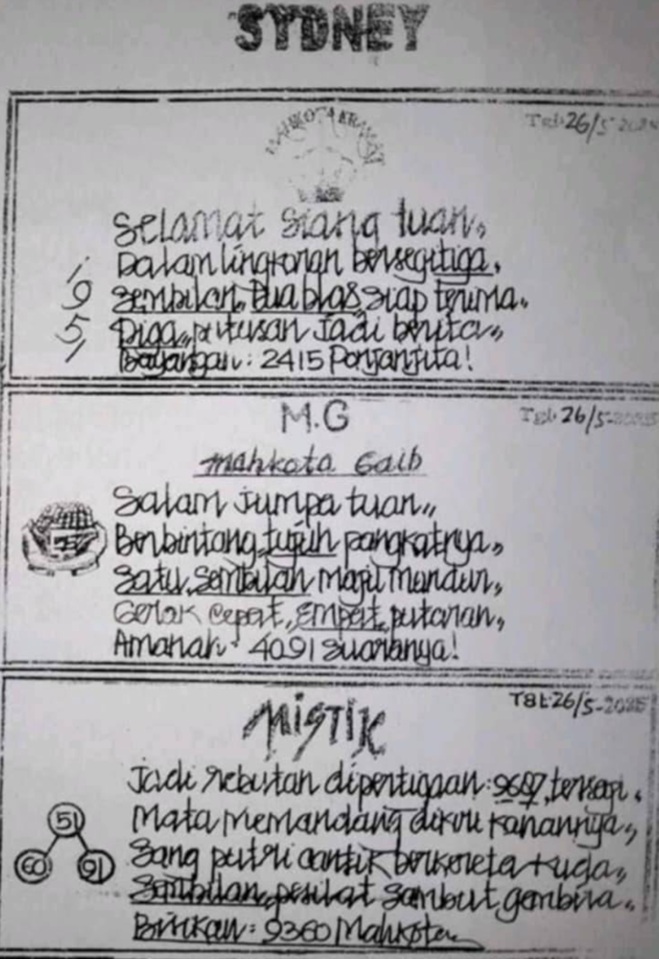 SYDNEY
MAHKOTA KRAMAT
Tgl: 26/5-2025
Selamat siang tuan,,
Dalam lingkaran bersegitiga,
Sembilan, Dua blas, siap terima,
Diga,, putusan jadi berita,,
Bayangan: 2415 Ponjanjita!
1
9
5
M.G
Tgl: 26/5-2025
mahkota Gaib
Salam jumpa tuan,,
Berbintang tujuh pangkatnya,,
Satu, Sembilan maju mundur,,
Gerak cepat, Empat, putaran,,
Amanah: 4091 suaranya!
MISTIK
Tgl: 26/5-2025
Jadi rebutan dipertigaan: 9687, tersaji,
Mata memandang dikiri kanannya,,
51
60 91
Sang putri cantik berkereta kuda,,
Sembilan, pesilat sambut gembira,,
Bisikan: 9360 Mahkota